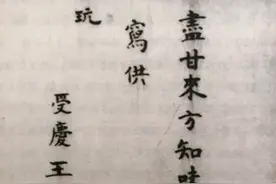 盡甘來方知
寫供
玩
受慶王